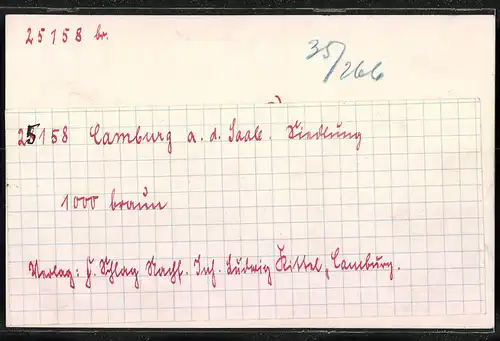 25158 br.
35/266
25158 Camburg a. d. Saale. Siedlung
1000 braun
Verlag: H. Schlag Nachf. Inh. Ludwig Kittel, Camburg.